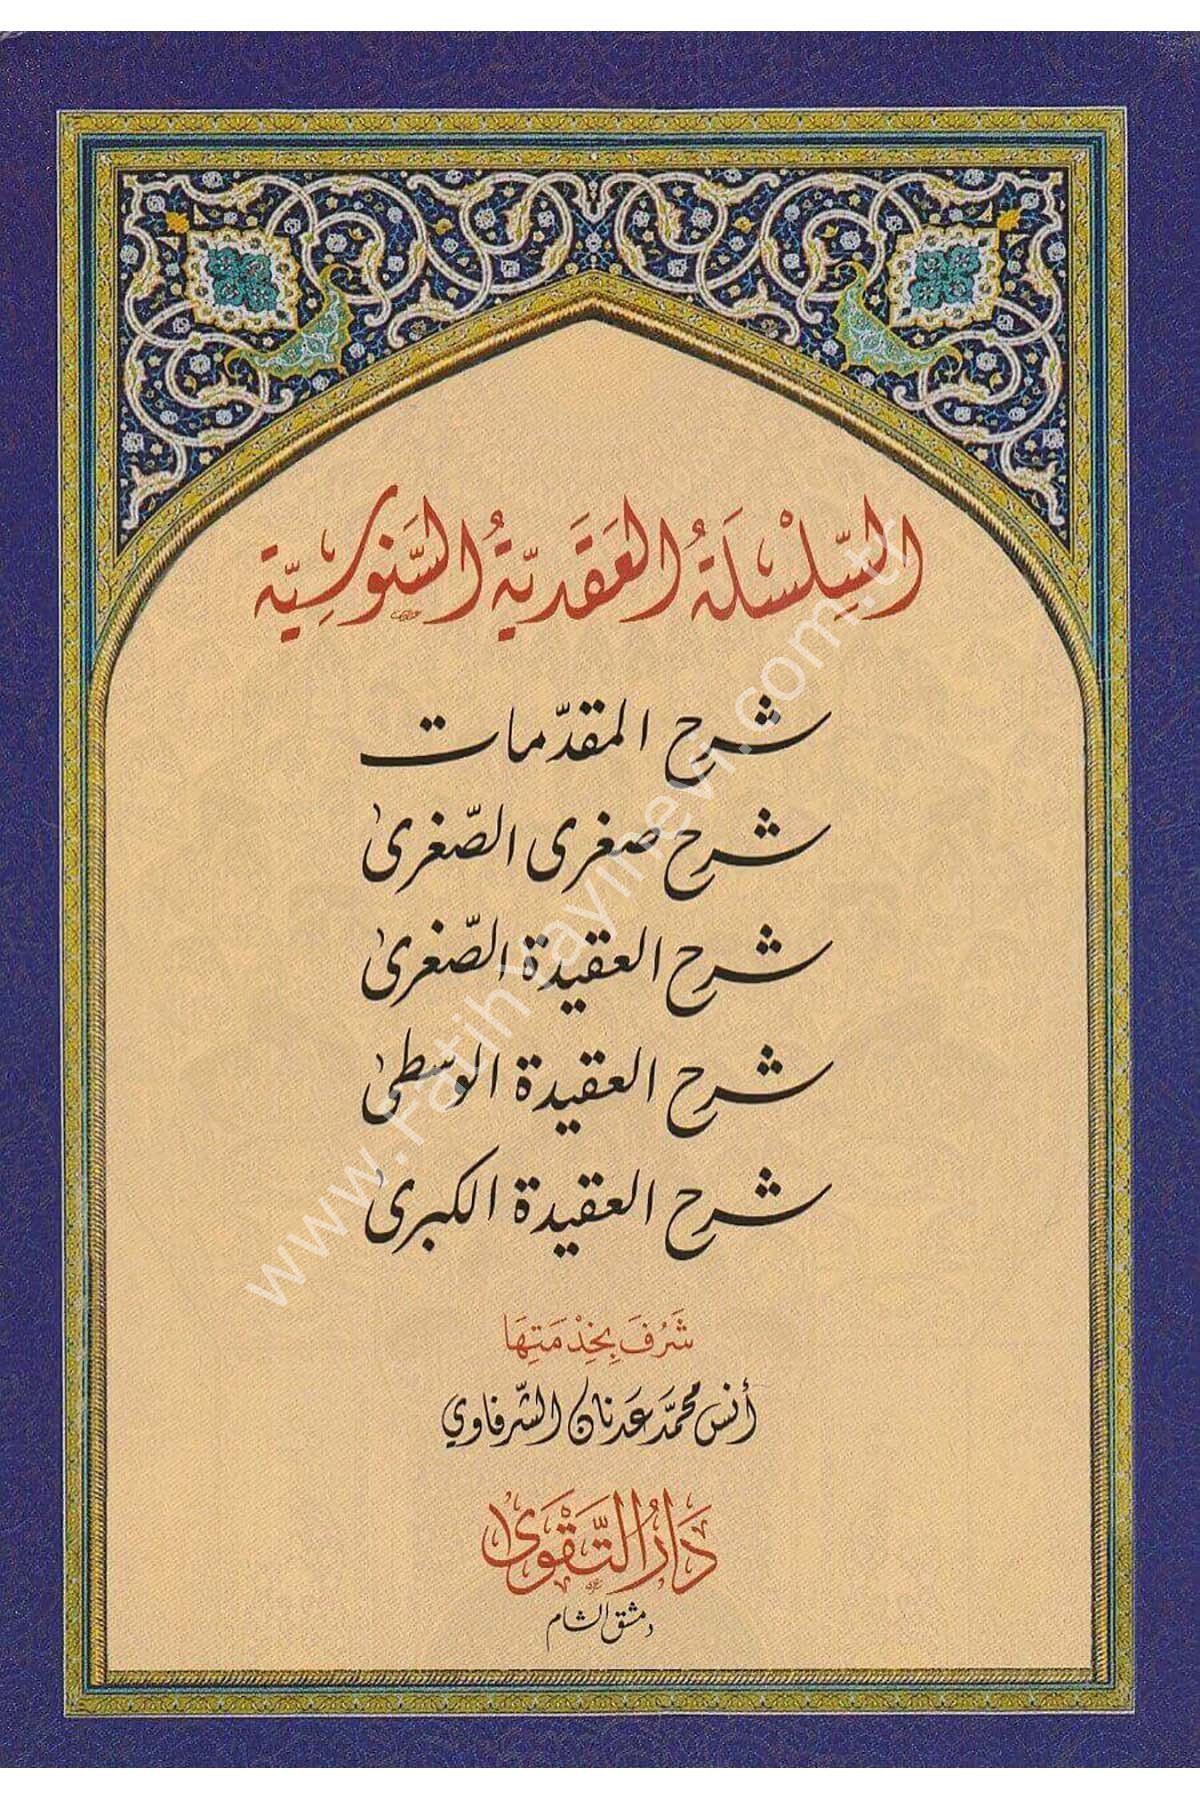 السِّلْسِلَةُ العَقَدِيَّةُ السَّنُوسِيَّة
شرح المقدّمات
شرح صغرى الصّغرى
شرح العقيدة الصّغرى
شرح العقيدة الوسطى
شرح العقيدة الكبرى
شَرُفَ بِخِدْمَتِهَا
أنس محمّد عَدنان الشّرفاوي
دَارُ التَّقْوَى
دمشق الشام
www.FatihYayinevi.com.tr